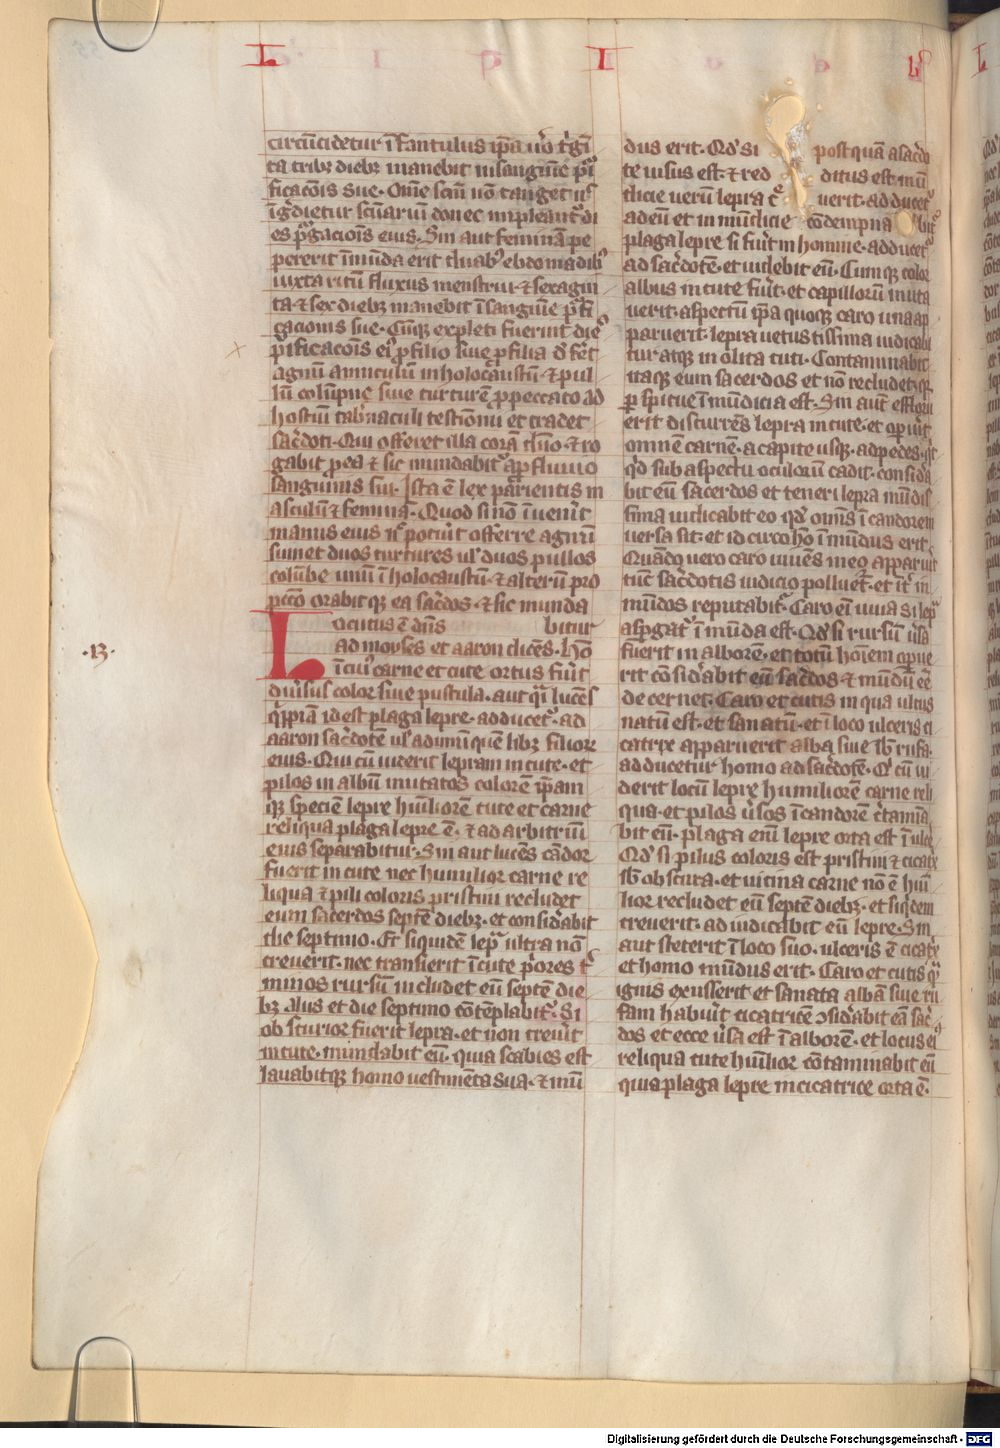 L I L
circu̅cidetur i̅fantulus ip̅a u̇o t̓gi̅
ta tribꝫ diebꝫ manebit in sangui̅e pu̓i
ficac̅ois sue. Om̅e sc̅m no̅ tanget n̓
i̅g̓dietur sc̅uariu̅ donec impleant᷑ di
es pu̓gac̅ois eius. Sin aut femina̅ pe
pererit i̅mu̅da erit duabꝰ ebdomadibꝰ
iuxta ritu̅ fluxus menstrui. ⁊ sexagin
ta ⁊ sex diebꝫ manebit i̅ sangui̅e pu̓fi
cacionis sue. Cu̅qꝫ expleti fuerint dies
pu̓ificac̅ois eiꝰ ꝓ filio siue ꝓ filia d̓fe̓t
agnu̅ anniculu̅ in holocaustu̅. ⁊ pul
lu̅ colu̅pne siue turture̅ ꝓ peccato ad
hostiu̅ tab̓naculi testio̅nii et tradet
sac̓doti. Qui offeret illa cora̅ d̅no. ⁊ ro
gabit ꝓ ea ⁊ sic mundabit᷑ a ꝓfluuio
sanguinis sui. Ista e̅ lex parientis m
asculu̅ ⁊ femina̅. Quod si no̅ i̅uen̓it
manus eius n̄ potu̓it offerre agnu̅
sumet duos turtures ul̓ duos pullos
colu̅be unu̅ i̅ holocaustu̅. ⁊ alteru̅ pro
pcc̅o orabit qꝫ ea sac̓dos. ⁊ sic munda
bitur
Locutus e̅ d̅ns
ad moyses et aaron dice̅s. ho̅
i̅ cuiꝰ carne et cute ortus fu̓it
diu̓sus color siue pustula. aut q̓i luce̅s
q̓ppia̅ id est plaga lepre. adducet᷑ ad
aaron sac̓dote̅ ul̓ ad unu̅ que̅libꝫ filior̅
eius. Qui cu̅ uiderit lepram in cute. et
pilos in albu̅ mutatos colore̅ ip̅am
qꝫ specie̅ lepre hu̅iliore̅ cute et carne
reliqua plaga lepre e̅. ⁊ ad arbitriu̅
eius separabitur. Sin aut luce̅s ca̅dor
fuerit in cute nec humilior carne re
liqua ⁊ pili coloris pristini recludet
eum sacerdos septe̅ diebꝫ. et consid̓abit
die septimo. Et siquide̅ lep̓a ultra no̅
creuerit. nec transierit i̅ cute p̓ores t̓
minos rursu̅ includet eu̅ septe̅ die
bꝫ alius et die septimo co̅te̅plabit᷑. Si
obscurior fuerit lepra. et non creu̓it
in cute. mundabit eu̅. quia scabies est
lauabitqꝫ homo uestime̅ta sua. ⁊ mu̅
·13·
dus erit. Qd̓ si postqua̅ a sac̓do
te uisus est. ⁊ red ditus est mu̅
dicie ueru̅ lepra c̓ uerit. adducet᷑
ad eu̅ et in mu̅dicie co̅dempna bit᷑
plaga lepre si fu̓it in homine. adducet᷑
ad sac̓dote̅. et uidebit eu̅. Cumqꝫ color
albus in cute fu̓it. et capilloru̅ muta
uerit. aspectu̅ ip̅a quoqꝫ caro uiua ap
paruerit. lepra uetustissima iudicabi
tur atqꝫ inolita cuti. Contaminabit
itaqꝫ eum sacerdos et no̅ recludet. qꝫ
ꝑspicue i̅mu̅dicia est. Sin aut̅ effloru
erit discurre̅s lepra in cute. et op̓u̓it
omne̅ carne̅. a capite usqꝫ. ad pedes. q̓c
q̓d sub aspectu̅ oculorum cadit. consid̓a
bit eu̅ sacerdos et teneri lepra mu̅dis
sima iudicabit eo qd̓ om̅is i̅ candorem
uersa sit. et idcirco ho̅ i̅mu̅dus erit.
Qua̅do uero caro uiue̅s in eo apparuit
tu̅c sac̓dotis iudicio polluet᷑. et it̓ in
mu̅dos reputabit᷑. Caro ei̅ uiua si lep̓
asp̓gat᷑ i̅mu̅da est. Qd̓ si rursu̅ u̓sa
fuerit in albore̅. et totu̅ ho̅i̅em op̓ue
rit co̅sid̓abit eu̅ sac̓dos ⁊ mu̅du̅ e̅e
decernet. Caro et cutis in qua ulcus
natu̅ est. et sanatu̅. et i̅ loco ulceris ci
catrix apparuerit alba siue sb̓rufa.
adducetur homo ad sac̓dote̅. Q̓ cu̅ ui
derit locu̅ lepre humiliore̅ carne reli
qua. et pilos u̓sos i̅ candore̅ c̓tamia̅
bit eu̅. plaga eni̅ lepre orta est i̅ ulce̓
Qd̓ si pilus coloris est pristini ⁊ cicat᷑x
sb̓obscura. et uicina carne no̅ e̅ hu̅i
lior recludet eu̅ septe̅ diebꝫ. et siq̓dem
creuerit. adiudicabit eu̅ lepre. Sin
aut steterit i̅ loco suo. ulceris e̅ cicat᷑x
et homo mu̅dus erit. Caro et cutis qu̓
ignis exusserit et sanata alba̅ siue ru
fam habu̓it cicatrice̅ ꝯsid̓abit ea̅ sac̓
dos et ecce u̓sa est i̅ albore̅. et locus eiꝰ
reliqua cute hu̅ilior co̅taminabit eu̅
quia plaga lepre in cicatrice orta e̅.
Digitalisierung gefördert durch die Deutsche Forschungsgemeinschaft - DFG